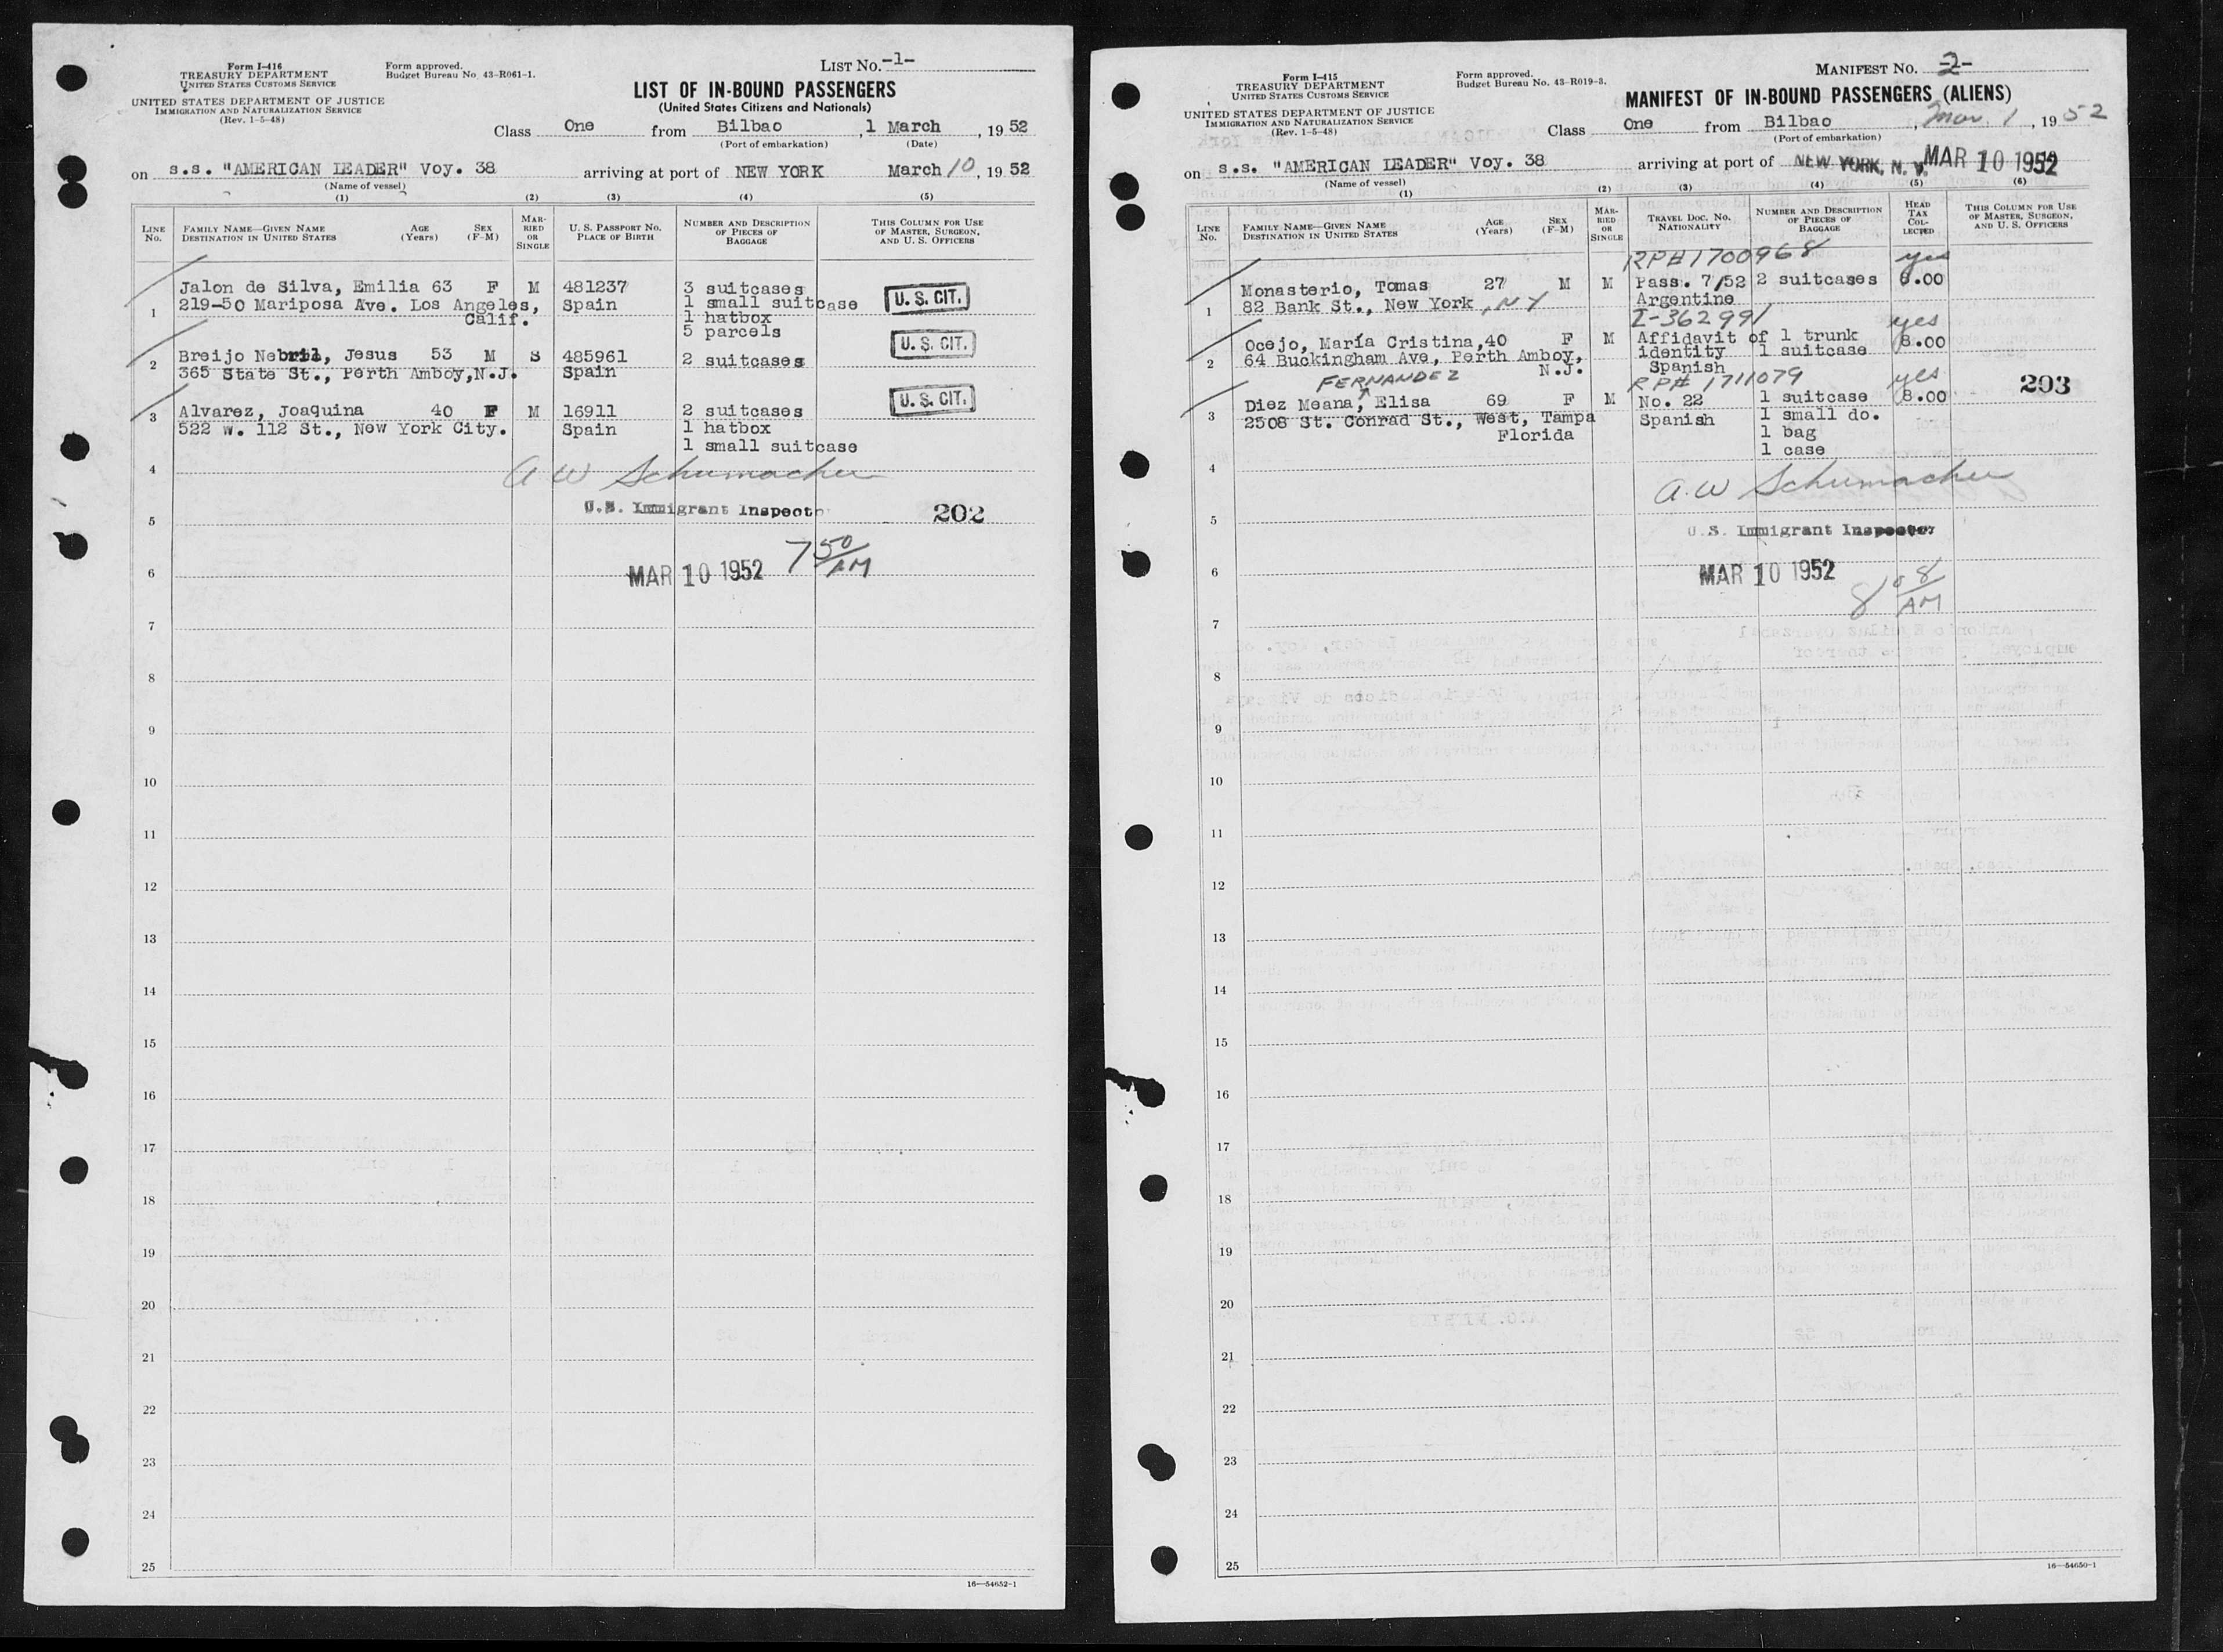 Form I-416
TREASURY DEPARTMENT
UNITED STATES CUSTOMS SERVICE
UNITED STATES DEPARTMENT OF JUSTICE
IMMIGRATION AND NATURALIZATION SERVICE
(Rev. 1-5-48)
Form approved.
Budget Bureau No. 43-R061-1.
LIST No. -1-
LIST OF IN-BOUND PASSENGERS
(United States Citizens and Nationals)
Class One from Bilbao , 1 March , 19 52
(Port of embarkation) (Date)
on s.s. "AMERICAN LEADER" Voy. 38 arriving at port of NEW YORK March 10, 19 52
(Name of vessel)
(1) (2) (3) (4) (5)
LINE No. FAMILY NAME—GIVEN NAME DESTINATION IN UNITED STATES AGE (Years) SEX (F-M) MARRIED OR SINGLE U. S. PASSPORT NO. PLACE OF BIRTH NUMBER AND DESCRIPTION OF PIECES OF BAGGAGE THIS COLUMN FOR USE OF MASTER, SURGEON, AND U. S. OFFICERS
1 Jalon de Silva, Emilia 63 F M 481237 3 suitcases U. S. CIT.
219-50 Mariposa Ave. Los Angeles, Spain 1 small suitcase
Calif. 1 hatbox
5 parcels
2 Breijo Nebril, Jesus 53 M S 485961 2 suitcases U. S. CIT.
365 State St., Perth Amboy, N.J. Spain
3 Alvarez, Joaquina 40 F M 16911 2 suitcases U. S. CIT.
522 W. 112 St., New York City. Spain 1 hatbox
1 small suitcase
4 A W Schumacher
U.S. Immigrant Inspector
5 202
6 MAR 10 1952 7 50/AM
7
8
9
10
11
12
13
14
15
16
17
18
19
20
21
22
23
24
25
16—54652-1
Form I-415
TREASURY DEPARTMENT
UNITED STATES CUSTOMS SERVICE
UNITED STATES DEPARTMENT OF JUSTICE
IMMIGRATION AND NATURALIZATION SERVICE
(Rev. 1-5-48)
Form approved.
Budget Bureau No. 43-R019-3.
MANIFEST No. -2-
MANIFEST OF IN-BOUND PASSENGERS (ALIENS)
Class One from Bilbao , Mar. 1 , 19 52
(Port of embarkation)
on s.s. "AMERICAN LEADER" Voy. 38 arriving at port of NEW YORK, N. Y. MAR 10 1952
(Name of vessel)
(1) (2) (3) (4) (5) (6)
LINE No. FAMILY NAME—GIVEN NAME DESTINATION IN UNITED STATES AGE (Years) SEX (F-M) MARRIED OR SINGLE TRAVEL DOC. NO. NATIONALITY NUMBER AND DESCRIPTION OF PIECES OF BAGGAGE HEAD TAX COLLECTED THIS COLUMN FOR USE OF MASTER, SURGEON, AND U. S. OFFICERS
RP# 1700968 yes
1 Monasterio, Tomas 27 M M Pass. 7/52 2 suitcases 8.00
82 Bank St., New York, NY Argentine
I-362991 yes
2 Ocejo, María Cristina, 40 F M Affidavit of 1 trunk 8.00
64 Buckingham Ave, Perth Amboy, identity 1 suitcase
N.J. Spanish
FERNANDEZ RP# 1711079 yes 203
3 Diez Meana, Elisa 69 F M No. 22 1 suitcase 8.00
2508 St. Conrad St., West, Tampa Spanish 1 small do.
Florida 1 bag
1 case
4 A. W Schumacher
5
U.S. Immigrant Inspector
6 MAR 10 1952
8 08/AM
7
8
9
10
11
12
13
14
15
16
17
18
19
20
21
22
23
24
25
16—54650-1